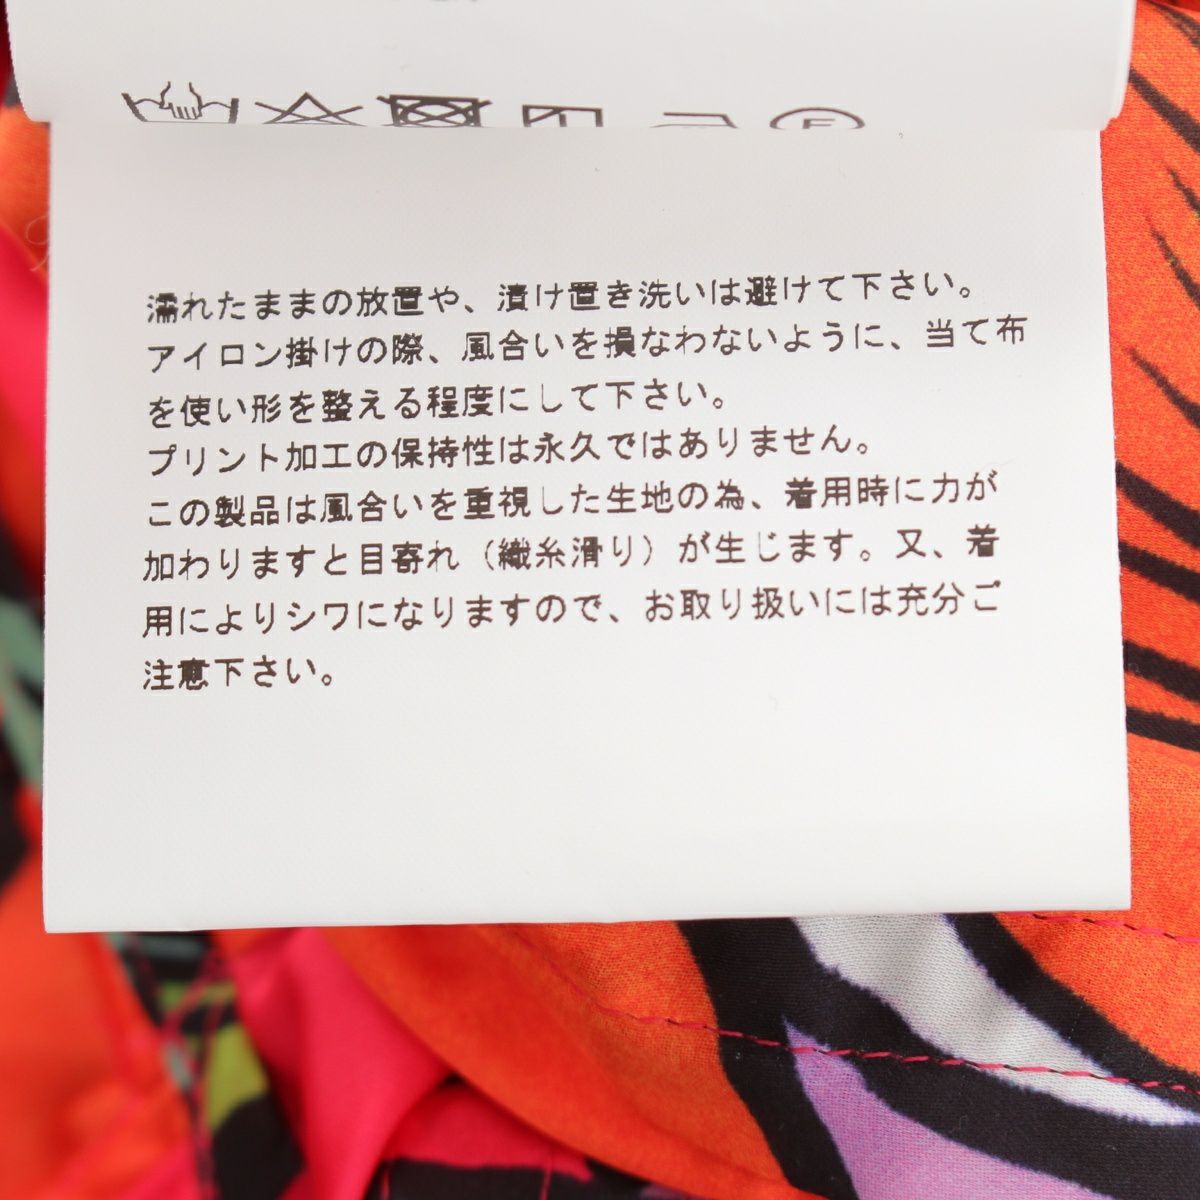 濡れたままの放置や、漬け置き洗いは避けて下さい。
アイロン掛けの際、風合いを損なわないように、当て布
を使い形を整える程度にして下さい。
プリント加工の保持性は永久ではありません。
この製品は風合いを重視した生地の為、着用時に力が
加わりますと目寄れ（織糸滑り）が生じます。又、着
用によりシワになりますので、お取り扱いには充分ご
注意下さい。